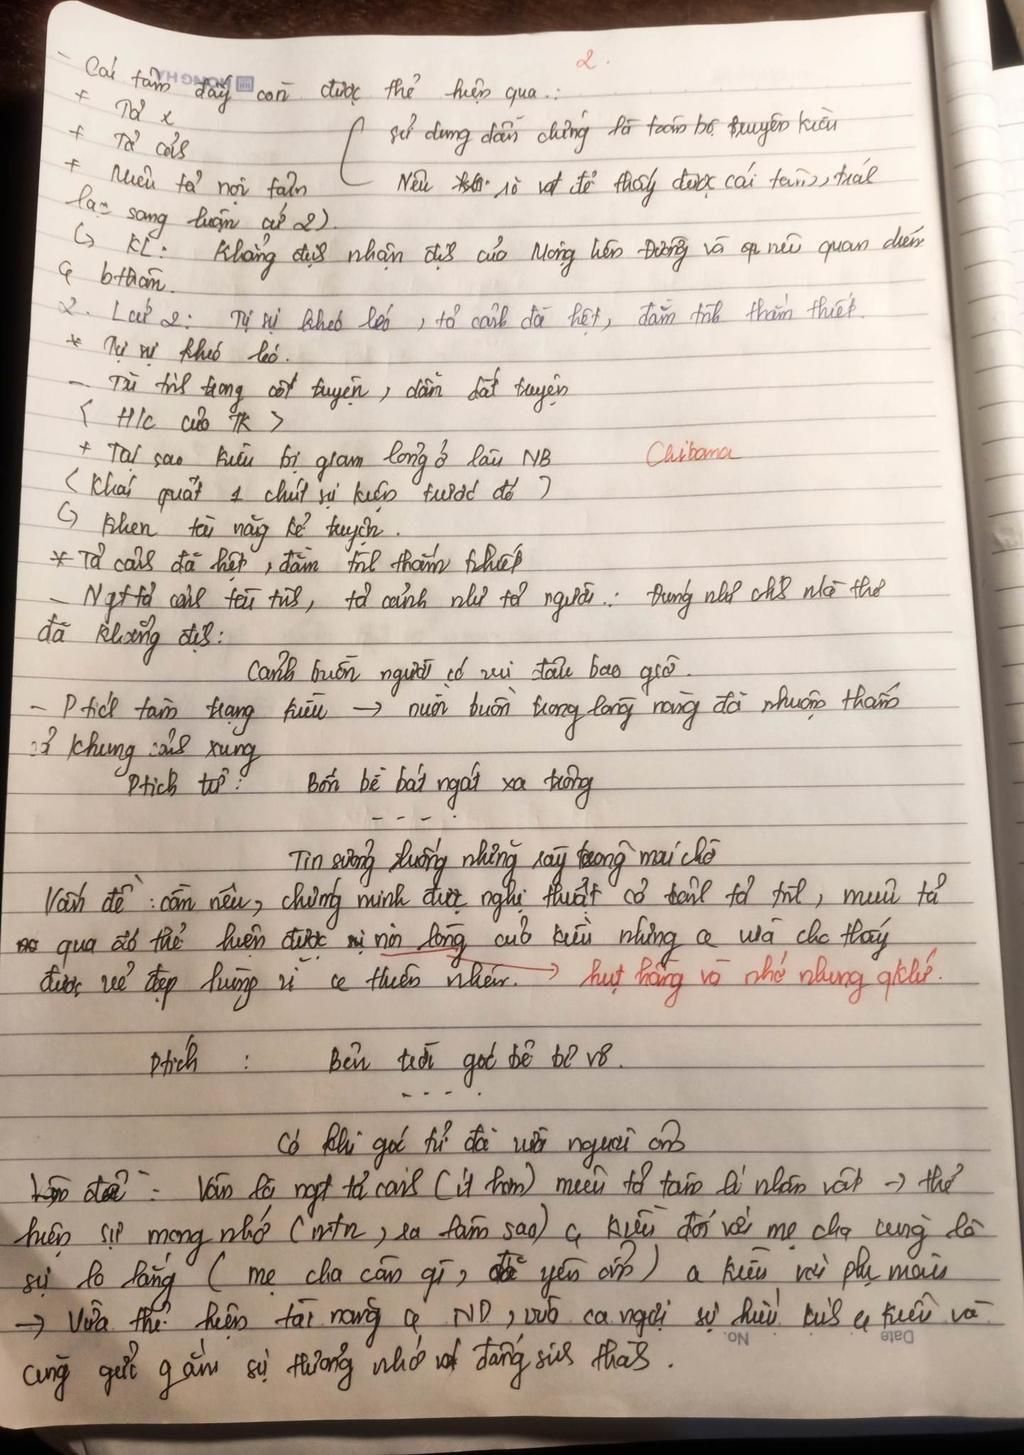 2.
- Cái tâm đấy còn được thể hiện qua:
+ Tả x
+ Tả cảnh
sử dụng dẫn chứng là toàn bộ truyện Kiều
+ Miêu tả nội tâm
Nêu sơ để thấy được cái tâm, trái
lạc sang luận cứ 2).
↳ KL: Khẳng định nhận định của Mộng Liên Đường và nêu quan điểm
bthân.
2. Lcứ 2: Tự sự khéo léo, tả cảnh đã hệt, đàm tình thấm thiết.
* Tự sự khéo léo.
- Tài tình trong cốt truyện, dẫn dắt truyện
< H/c của TK >
+ Tại sao Kiều bị giam lỏng ở lầu NB
Chibana
(Khái quát 1 chút sự kiện trước đó)
↳ Khen tài năng kể truyện.
* Tả cảnh đã hệt, đàm tình thấm thiết
- Ngt tả cảnh tài tình, tả cảnh như tả người: Đúng như chính nhà thơ
đã khẳng định:
Cảnh buồn người có vui đâu bao giờ.
- Ptích tâm trạng Kiều → nỗi buồn trong lòng nàng đã nhuộm thấm
cả khung cảnh xung
Ptích từ: Bốn bề bát ngát xa trông
- - - -
Tin sương luống những rày trông mai chờ
Vấn đề: cần nêu, chứng minh được nghệ thuật cả cảnh tả tình, miêu tả
qua đó thể hiện được nỗi lòng của Kiều nhưng vừa cho thấy
được vẻ đẹp hùng vĩ thiên nhiên. → hụt hẫng và nhớ nhung qkhứ.
Ptích : Bên trời góc bể bơ vơ.
- - - -
Có khi gốc tử đã vừa người ôm
Vẫn là ngt tả cảnh (ít hơn) miêu tả tâm lí nhân vật → thể
hiện sự mong nhớ (ntn, ra làm sao) Kiều đối với mẹ cha cũng là
sự lo lắng (mẹ cha cần gì, yên ổn) Kiều với phụ mẫu
→ Vừa thể hiện tài năng ND, vừa ca ngợi sự hiếu kính Kiều và
cũng gửi gắm sự thương nhớ đấng sinh thành.
Date
No.